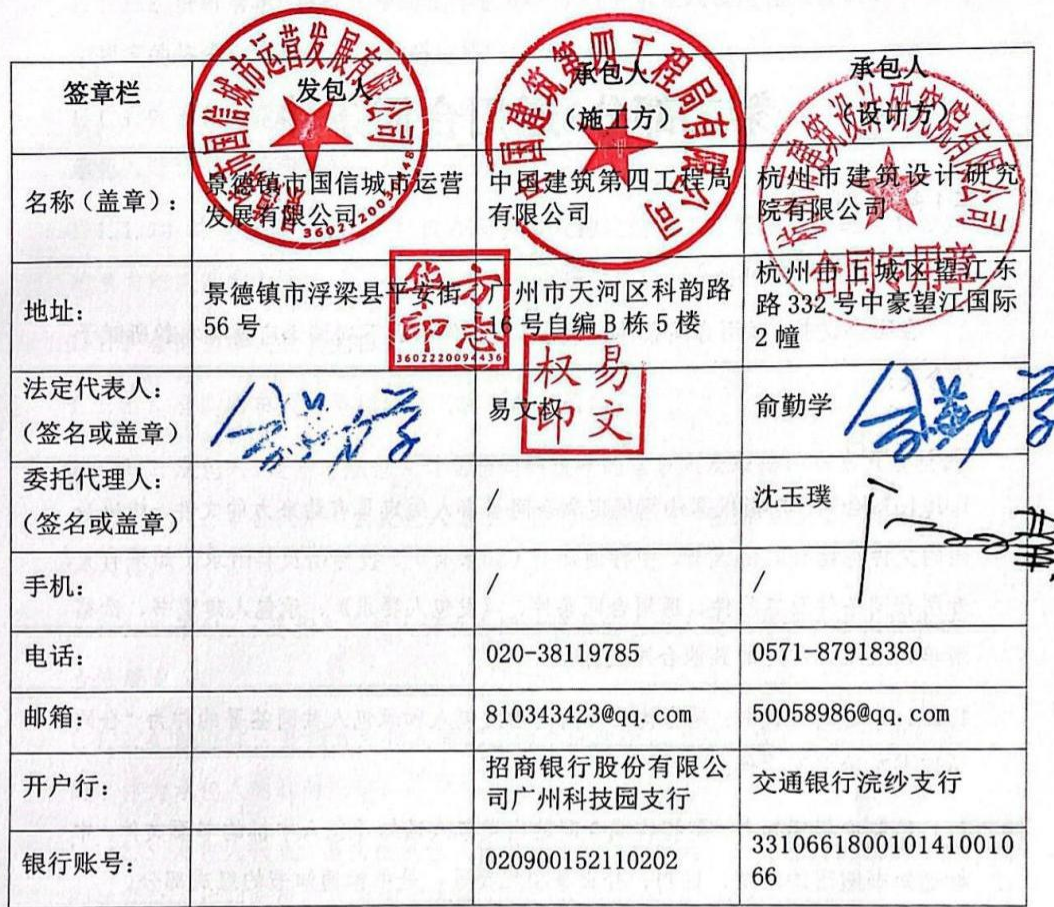 签章栏
发包人
承包人
（施工方）
承包人
（设计方）
名称（盖章）：
景德镇市国信城市运营
发展有限公司
中国建筑第四工程局
有限公司
杭州市建筑设计研究
院有限公司
地址：
景德镇市浮梁县平安街
56号
广州市天河区科韵路
16号自编B栋5楼
杭州市上城区望江东
路332号中豪望江国际
2幢
法定代表人：
（签名或盖章）
易文权
俞勤学
委托代理人：
（签名或盖章）
沈玉璞
手机：
/
/
电话：
020-38119785
0571-87918380
邮箱：
810343423@qq.com
50058986@qq.com
开户行：
招商银行股份有限公
司广州科技园支行
交通银行浣纱支行
银行账号：
020900152110202
3310661800101410010
66
景德镇市国信城市运营发展有限公司
中国建筑第四工程局有限公司
杭州市建筑设计研究院有限公司
合同专用章
方志华印
3602220094436
易文权印